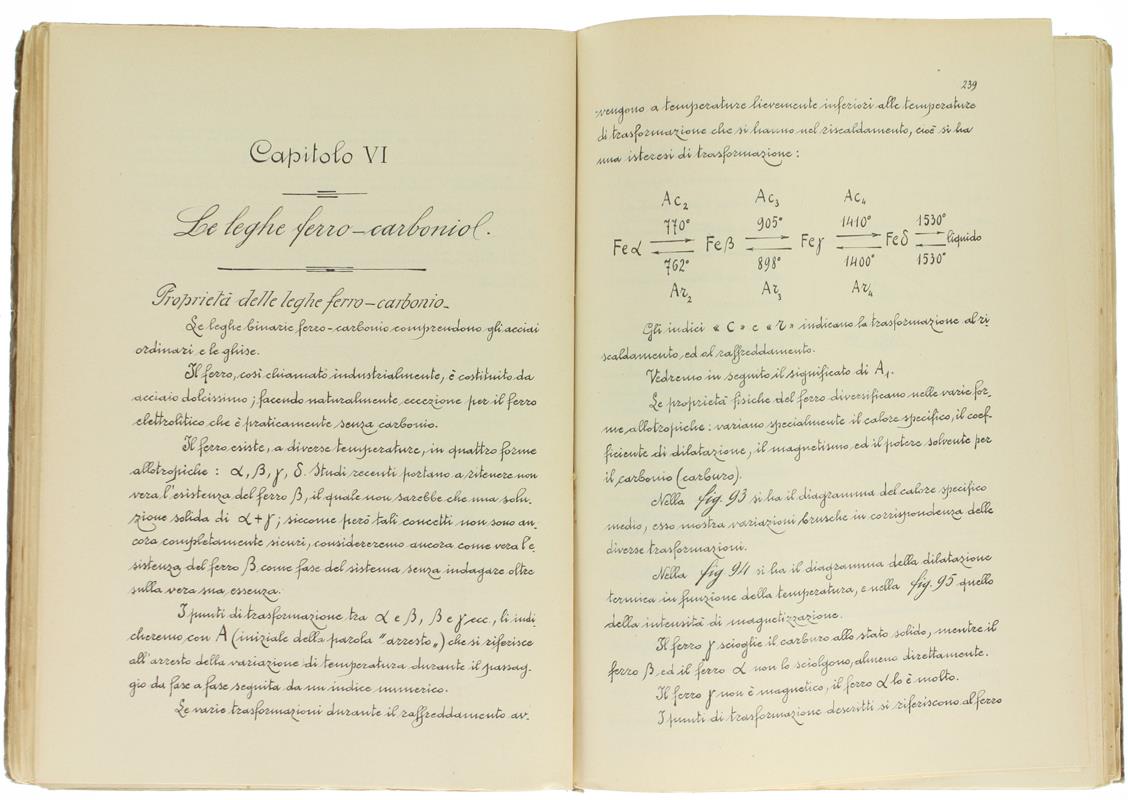 Capitolo VI
Le leghe ferro-carbonio.
Proprietà delle leghe ferro-carbonio-
Le leghe binarie ferro-carbonio comprendono gli acciai
ordinari e le ghise.
Il ferro, così chiamato industrialmente, è costituito da
acciaio dolcissimo; facendo naturalmente, eccezione per il ferro
elettrolitico che è praticamente senza carbonio.
Il ferro esiste, a diverse temperature, in quattro forme
allotropiche: α, β, γ, δ. Studi recenti portano a ritenere non
vera l'esistenza del ferro β, il quale non sarebbe che una solu-
zione solida di α + γ; siccome però tali concetti non sono an-
cora completamente sicuri, considereremo ancora come vera l'e-
sistenza del ferro β come fase del sistema senza indagare oltre
sulla vera sua essenza.
I punti di trasformazione tra α e β, β e γ ecc., li indi
cheremo con A (iniziale della parola "arresto„) che si riferisce
all'arresto della variazione di temperatura durante il passag-
gio da fase a fase seguita da un indice numerico.
Le varie trasformazioni durante il raffreddamento av-
239
vengono a temperature lievemente inferiori alle temperature
di trasformazione che si hanno nel riscaldamento, cioè si ha
una isteresi di trasformazione:
Ac₂ Ac₃ Ac₄
770° 905° 1410° 1530°
Fe α Fe β Fe γ Fe δ liquido
762° 898° 1400° 1530°
Ar₂ Ar₃ Ar₄
Gli indici « c » e « r » indicano la trasformazione al ri-
scaldamento ed al raffreddamento.
Vedremo in seguito il significato di A₁.
Le proprietà fisiche del ferro diversificano nelle varie for-
me allotropiche: variano specialmente il calore specifico, il coef-
ficiente di dilatazione, il magnetismo ed il potere solvente per
il carbonio (carburo).
Nella fig. 93 si ha il diagramma del calore specifico
medio, esso mostra variazioni brusche in corrispondenza delle
diverse trasformazioni.
Nella fig 94 si ha il diagramma della dilatazione
termica in funzione della temperatura, e nella fig. 95 quello
della intensità di magnetizzazione.
Il ferro γ scioglie il carburo allo stato solido, mentre il
ferro β ed il ferro α non lo sciolgono, almeno direttamente.
Il ferro γ non è magnetico, il ferro α lo è molto.
I punti di trasformazione descritti si riferiscono al ferro